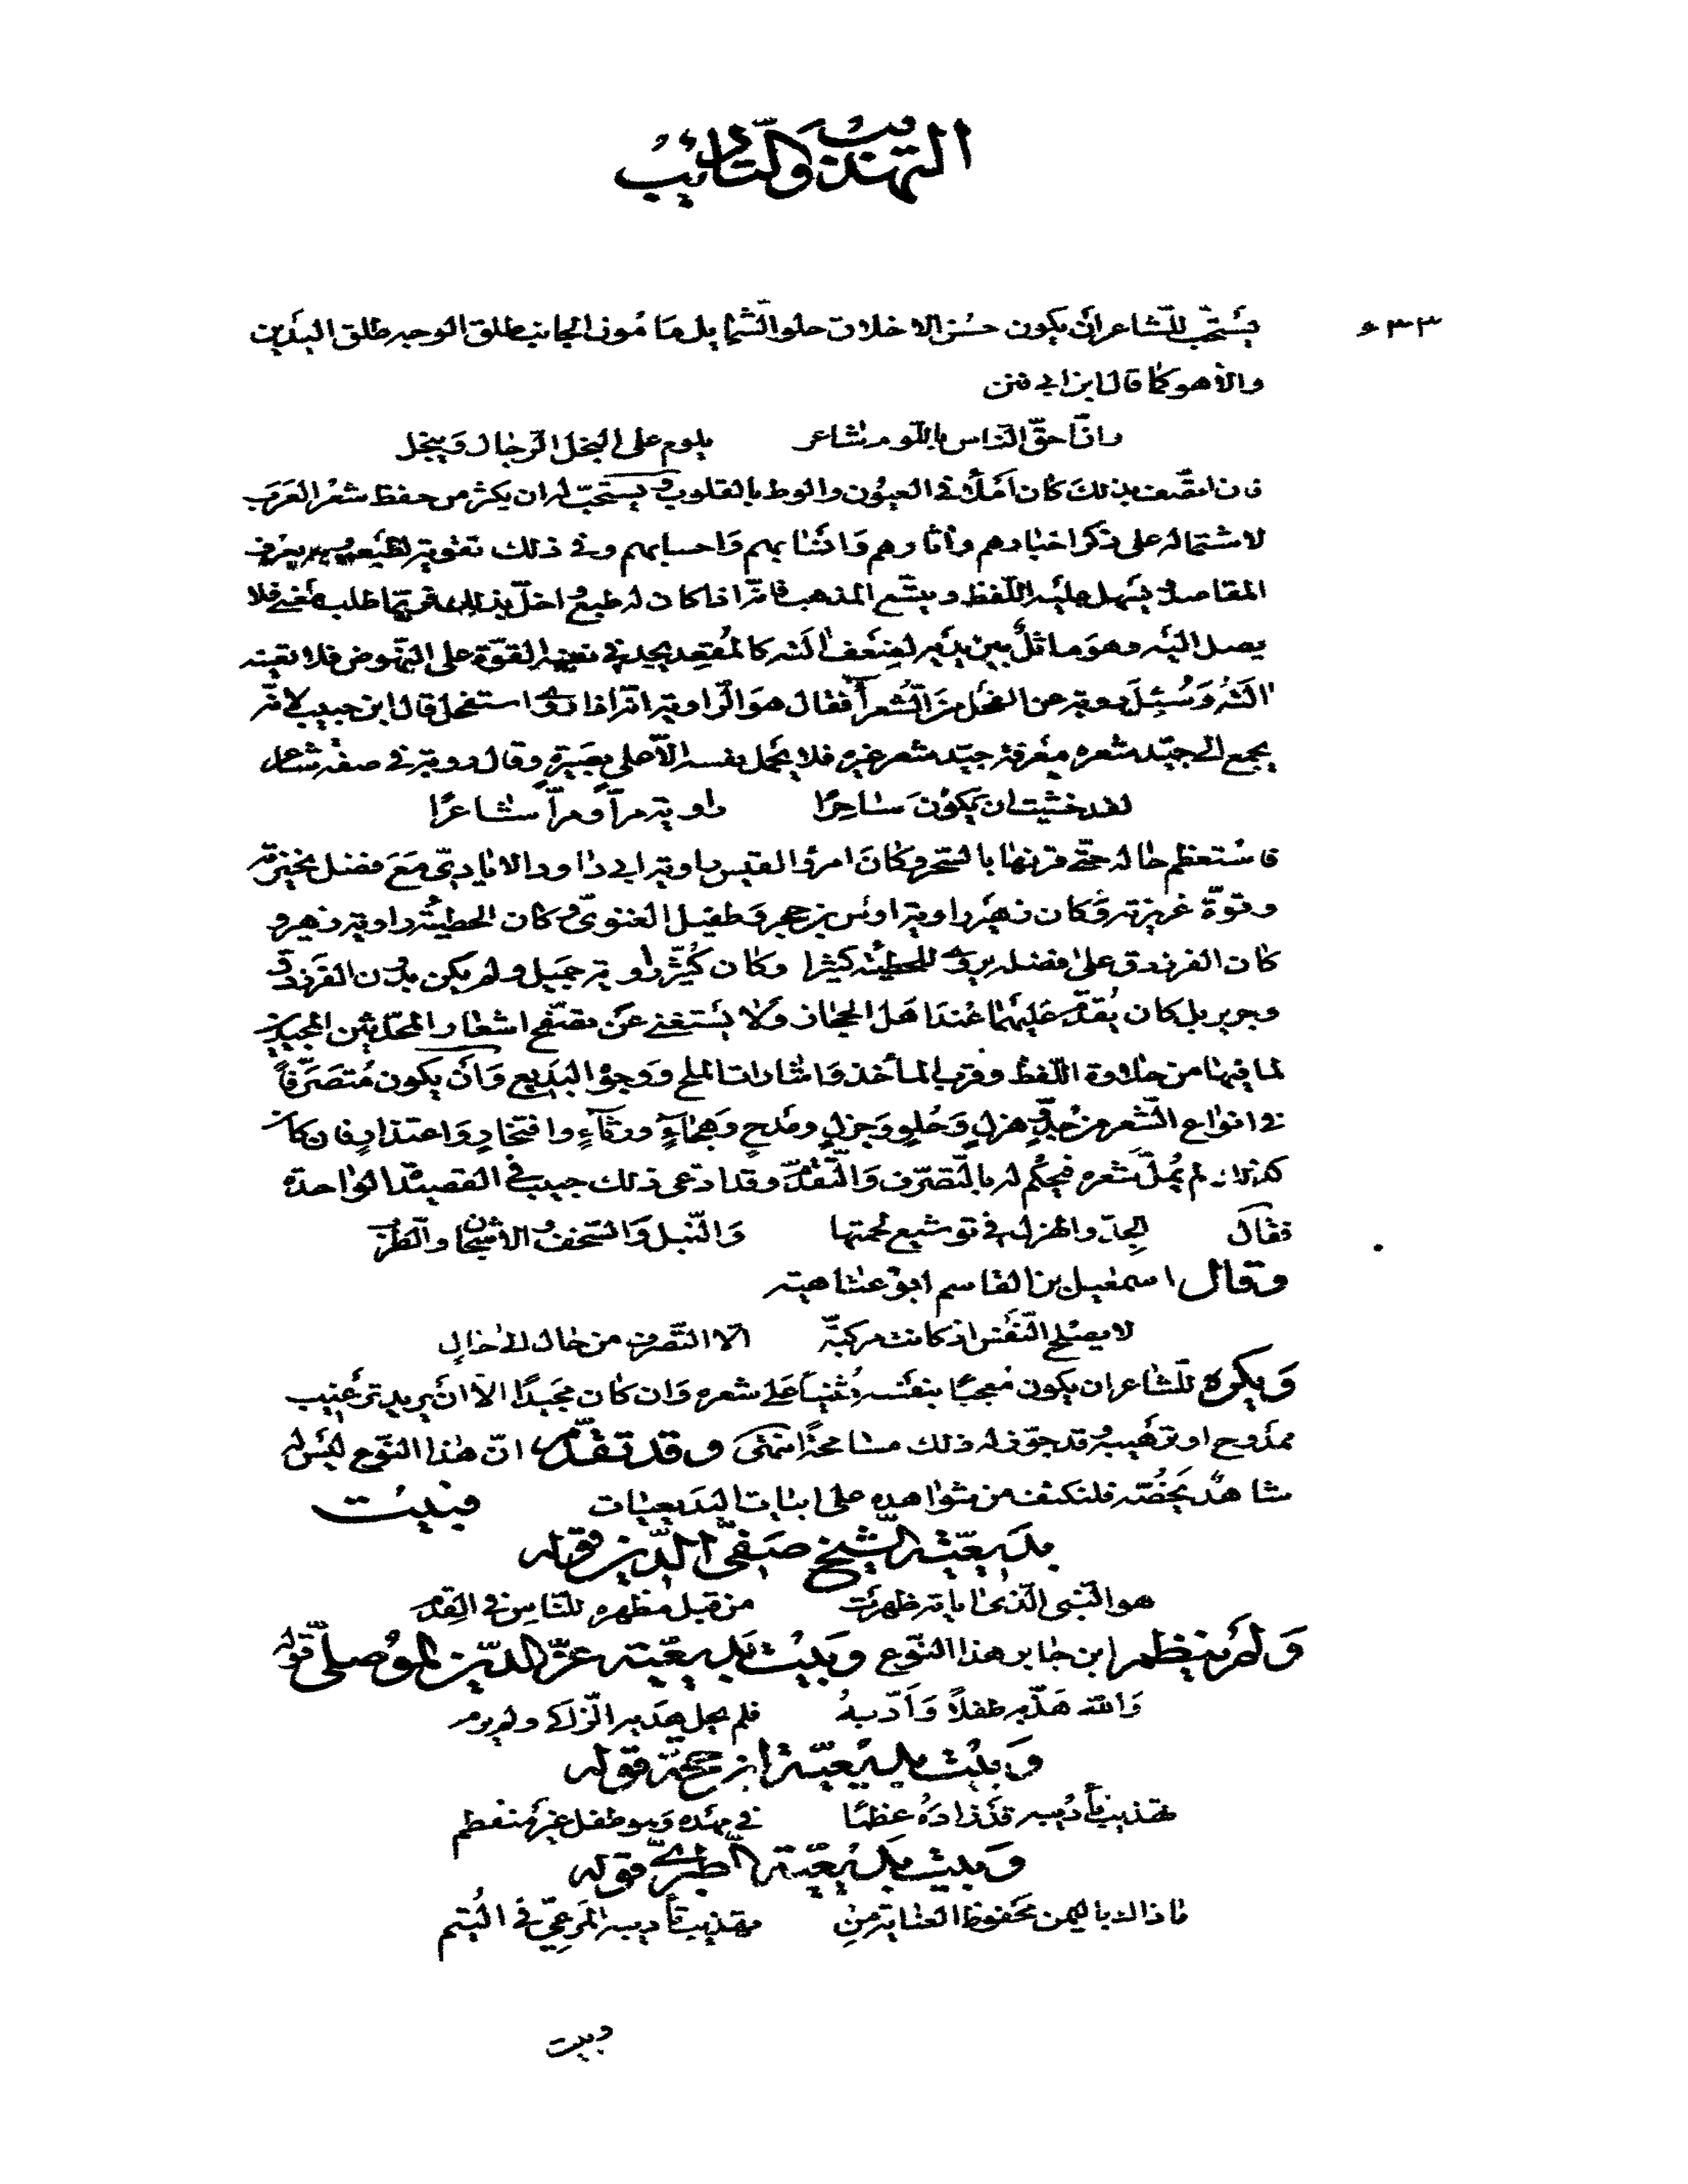 التهذيب والتأديب
٤٣٣
يستحب للشاعر أن يكون حسن الاخلاق حلو الشمايل مامون الجانب طلق الوجه طلق اليدين
والا فهو كما قال ابن ابي فنن
وانّ احقّ النّاس باللّوم شاعر يلوم على البخل الرّجال ويبخل
فان اتصف بذلك كان اهلا في العيون والوط بالقلوب ويستحبّ له ان يكثر من حفظ شعر العرب
لاشتماله على ذكر اخبارهم وآثارهم وانسابهم واحسابهم وفي ذلك تقوية لطبعه وبه يعرف
المقاصد ويسهل عليه اللّفظ ويتسع المذهب فانّه اذا كان له طبع واخلّ بذلك فربّما طلب معنى فلا
يصل اليه وهو ماثل بين يديه لضعف آلته كالمقعد يجد في نفسه القوّة على النهوض فلا تعينه
الآلة وسئل رؤبة عن الفحل من الشعرآ فقال هو الرّاوية انّه اذا روى استفحل قال ابن حبيب لانّه
يجمع الى جيّد شعره معرفة جيّد شعر غيره فلا يحمل نفسه الاّ على بصيرةٍ وقال رؤبة في صفة شاعر
لقد خشيت ان يكونَ ساحِرًا راوية مرآ ومرآ شاعرًا
فاستعظم حاله حتّى قرنها بالسّحر وكانَ امرؤ القيس راوية ابي داود الايادي مَعَ فضل نحيزته
وقوّة غريزته وكان زهير راوية اوس بن حجر وطفيل الغنويّ وكان الحطيئة راوية زهير و
كان الفرزدق على فضله يروى للحطيئة كثيرا وكان كُثَيّر راوية جميل ولم يكن بدون الفرزدق
وجرير بل كان يُقدّم عَليهما عند اهل الحجاز ولا يستغنى عن تصفّح اشعار المحدّثين المجيدين
لما فيها من حلاوة اللّفظ وقرب المأخذ واشارات الملح ووجوه البديع وَانْ يكون مُتصَرّفاً
في انواع الشّعر من جدٍّ وهزلٍ وَحُلوٍ وَجزلٍ ومدحٍ وهجاءٍ ورثاءٍ وافتخارٍ وَاعتذارٍ فان كان
كذلك لم يُملّ شعره فيحكم له بالتّصرّف وَالتّقدّم وقد ادعى ذلك حبيب في القصيدة الواحدة
فقال الجدّ والهزل في توشيع لحمتها وَالنّبل وَالسّخف والاشجان والطّرب
وقال اسمعيل بن القاسم ابو عتاهية
لا يصلح النّفس اذ كانت مركبة الاّ التّصرف من حال الى حالٍ
وَيكره للشاعر ان يكون مُعجبًا بنفسه مُثنيًا عَلى شعره وَان كان مجيدًا الاّ انْ يريد ترغيب
ممدوح او ترهيبه وقد جوّز له ذلك مسامحةً انتهى وقد تقدّم انّ هذا النّوع ليس له
شاهدٌ يَخصّه فلنكتف من شواهده على ابيات البديعيات فبيت
بديعيّة الشّيخ صَفيّ الدّين قوله
هو النّبى الّذى اياته ظهرت من قبل مظهره للنّاس في القِدم
وَلم ينظم ابن جابر هذا النّوع وَبيت بديعيّة عزّ الدّين الموصلى قوله
وَاللّه هَذّبه طفلاً وَاَدّبهُ فلم يحل هديه الزّاكى ولم يرم
وَبيت بديعيّة ابن حجّة قوله
تهذيب تأديبه قد زادهُ عظمًا في مهده وَهو طفل غير منفطم
وَبيت بديعيّة الطّبرى قوله
ماذا الد باليمن محفوظ العناية من تهذيب تأديبه المرعيّ في اليُتم
وبيت